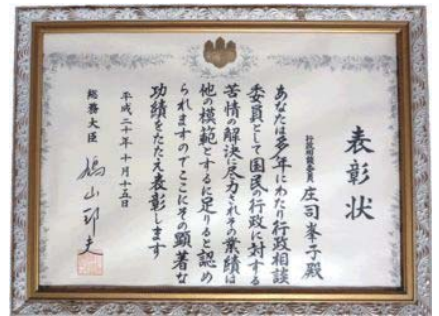 表彰状
行政相談委員 庄司峯子殿
あなたは多年にわたり行政相談
委員として国民の行政に対する
苦情の解決に尽力されその業績は
他の模範とするに足りると認め
られますのでここにその顕著な
功績をたたえ表彰します
平成二十年十月十五日
総務大臣 鳩山邦夫